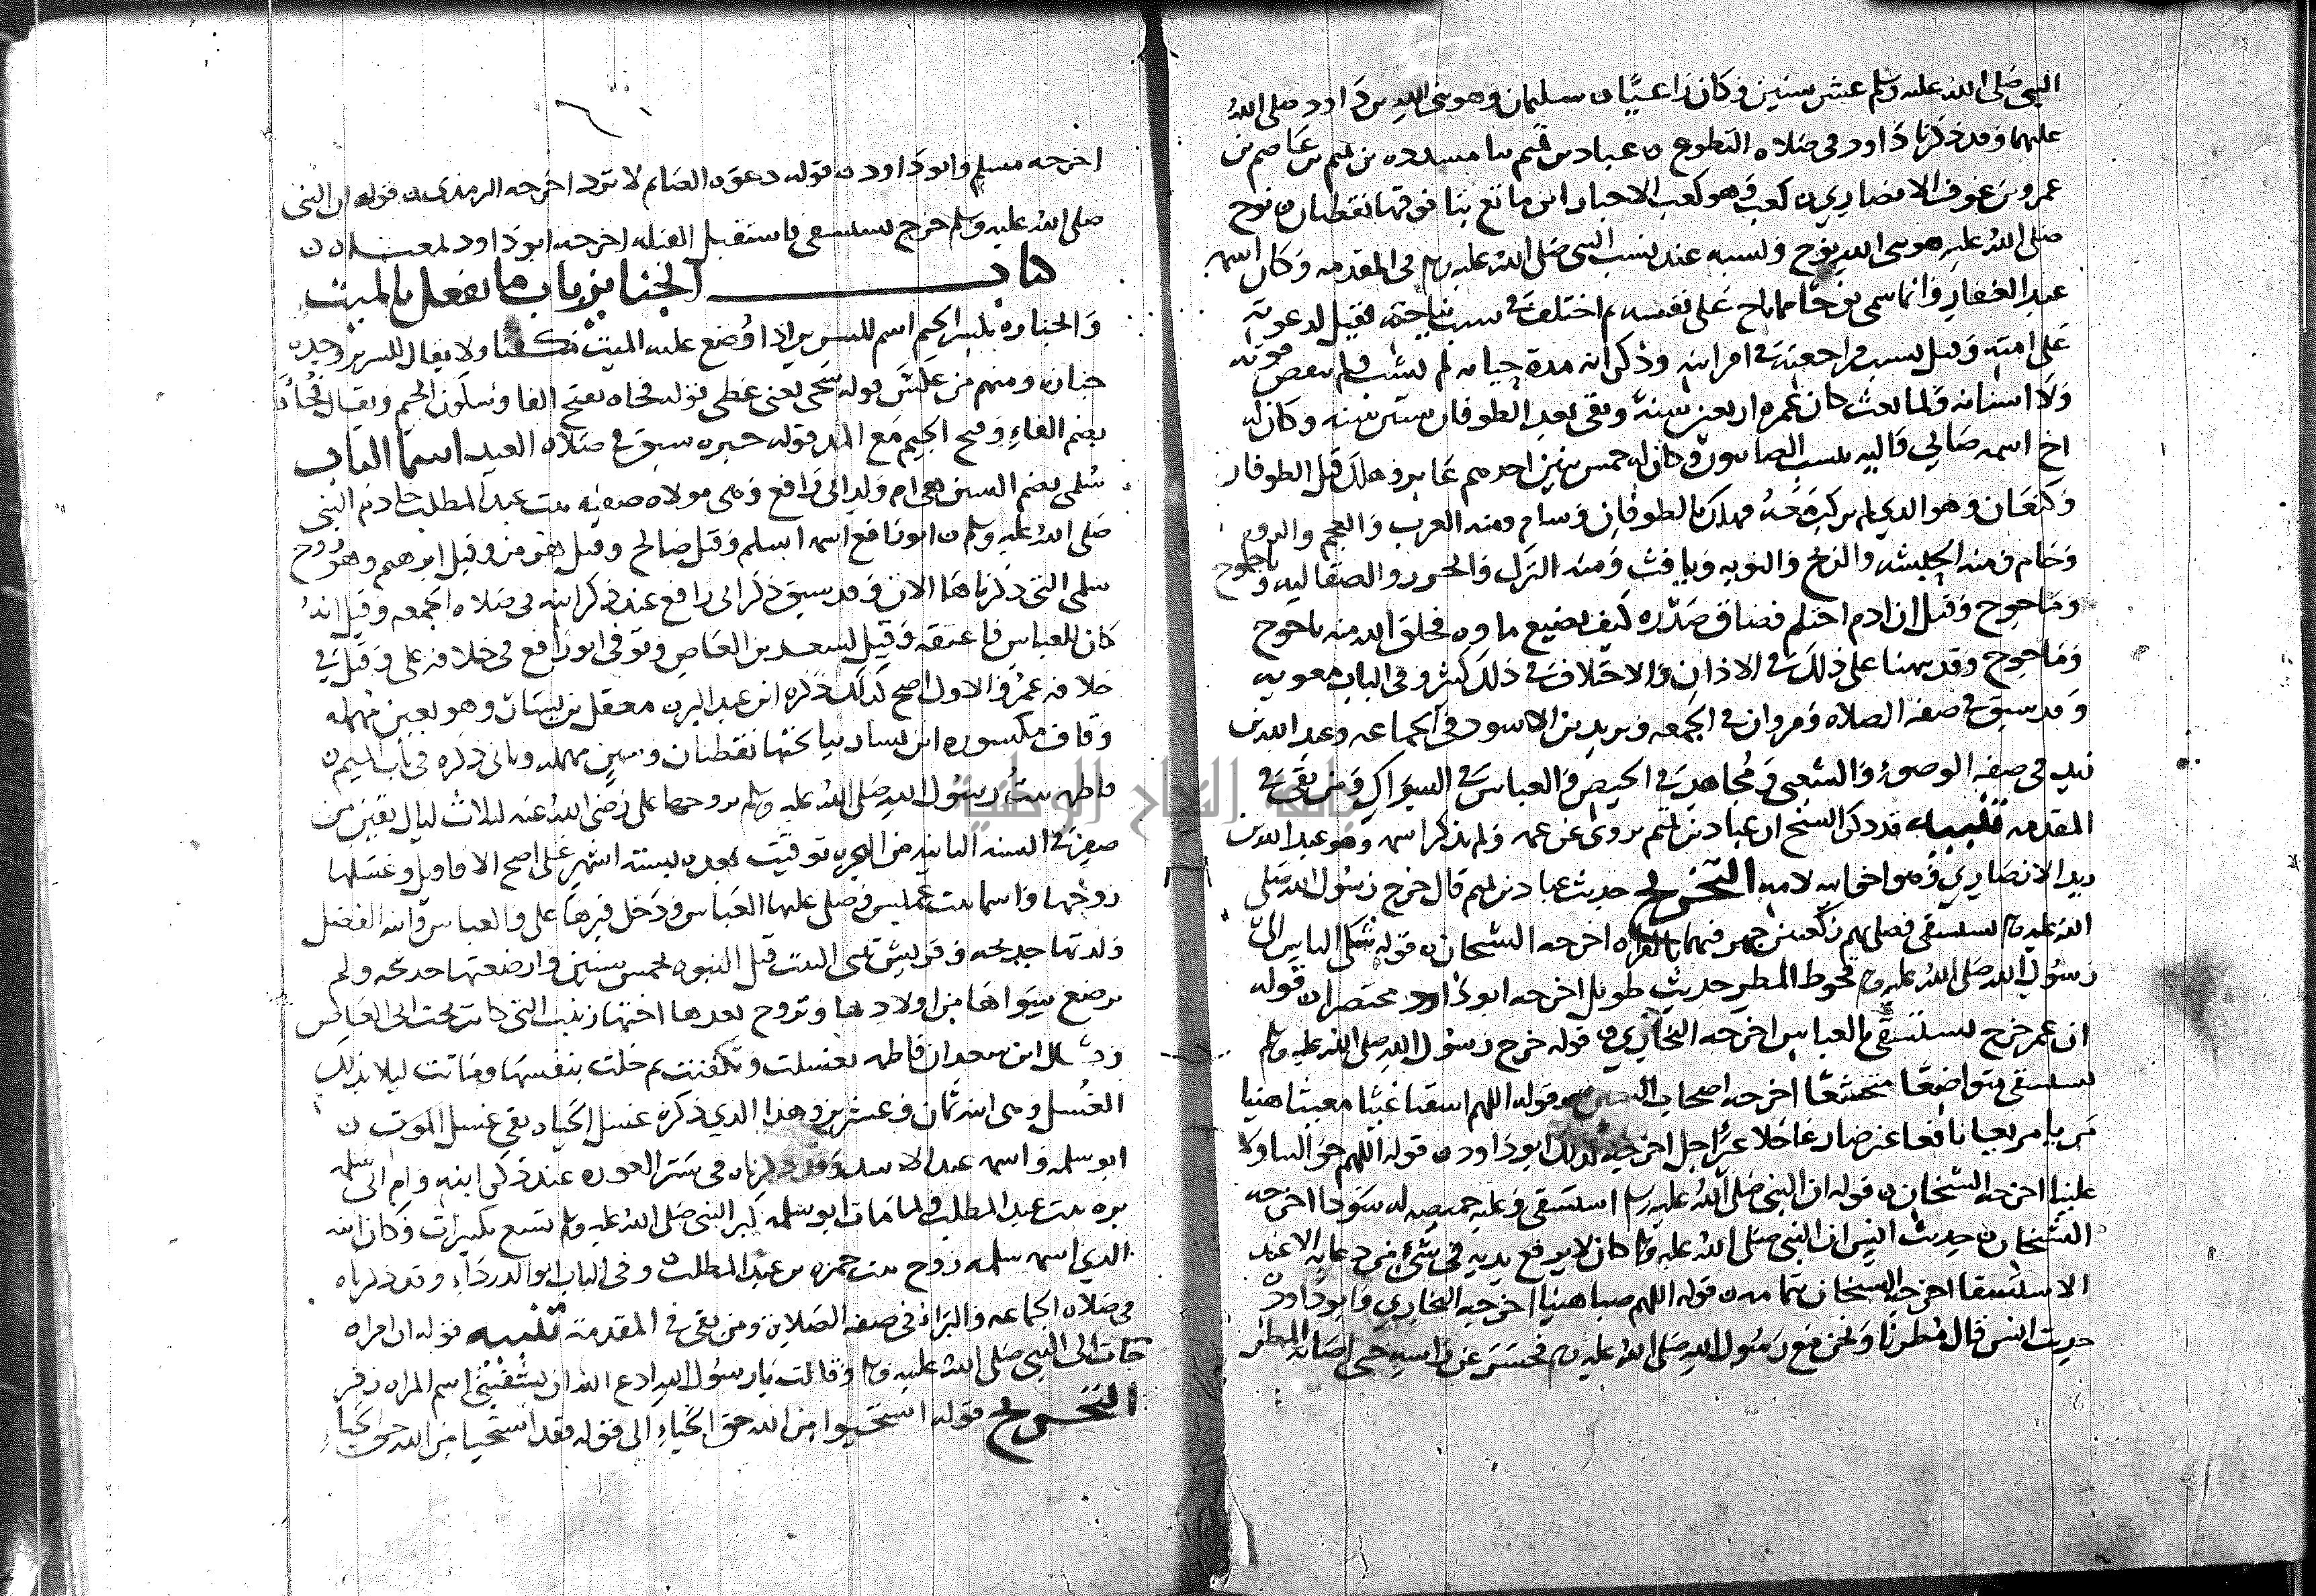 النبي صلى الله عليه وسلم عشر سنين وكان راعيا ن سليمان وهو نبي الله بن داود صلى الله
عليهما وقد ذكرنا داود في صلاة التطوع ن عباد بن تميم بن عاصم بن
عمرو بن عوف الانصاري ن كعب وهو كعب الاحبار ابن ماتع بتا فوقها نقطتان ن نوح
صلى الله عليه هو نبي الله نوح ونسبه عند نسب النبي صلى الله عليه وسلم في المقدمه وكان اسمه
عبد الغفار وانما سمي نوحا لما ناح على نفسه ثم اختلف في سبب نياحته فقيل لدعوته
على امته وقيل لسبب مراجعته في امر ابنه وذكر انه مدة حياته لم يشب ولم ينقص قوته
ولا اسنانه ولما بعث كان عمره اربعين سنة وبقي بعد الطوفان ستين سنه وكان له
اخ اسمه صابي واليه ينسب الصابيون وكان له خمس بنين احدهم عابر وهلك قبل الطوفان
وكنعان وهو الذي لم يركب معه فهلك بالطوفان وسام ومنه العرب والعجم والروم
وحام ومنه الحبشه والزنج والنوبه ويافث ومنه الترك والخزر والصقالبه وياجوج
وماجوج وقيل ان ادم احتلم فضاق صدره كيف يضيع ماوه فخلق الله منه ياجوج
وماجوج وقد نبهنا على ذلك في الاذان والاختلاف في ذلك كثير وفي الباب معويه
وقد سبق في صفه الصلاه ومروان في الجمعه ويزيد بن الاسود في الجماعه وعبد الله بن
زيد في صفه الوضوء والشعبي ومجاهد في الحيض والعباس في السواك ومن بقي في
المقدمه تنبيه قد ذكر الشيخ ان عباد بن تميم روى عن عمه ولم يذكر اسمه وهو عبد الله بن
زيد الانصاري وهو اخو ابيه لامه التخريج حديث عباد بن تميم قال خرج رسول الله صلى
الله عليه وسلم يستسقي فصلى بهم ركعتين جهر فيهما بالقراه اخرجه الشيخان ن قوله شكى الناس الى
رسول الله صلى الله عليه وسلم قحوط المطر حديث طويل اخرجه ابو داود مختصرا ن قوله
ان عمر خرج يستسقي بالعباس اخرجه البخاري ن قوله خرج رسول الله صلى الله عليه وسلم
يستسقي متواضعا متخشعا اخرجه اصحاب السنن قوله اللهم اسقنا غيثا مغيثا هنيا
مريا مريعا نافعا غير ضار عاجلا غير اجل اخرجه كذلك ابو داود ن قوله اللهم حوالينا ولا
علينا اخرجه الشيخان ن قوله ان النبي صلى الله عليه وسلم استسقى وعليه خميصه له سودا اخرجه
الشيخان حديث انس ان النبي صلى الله عليه وسلم كان لا يرفع يديه في شي من دعايه الا عند
الاستسقا اخرجه الشيخان بتمامه ن قوله اللهم صيبا هنيا اخرجه البخاري وابو داود
حديث انس قال مطرنا ونحن مع رسول الله صلى الله عليه وسلم فحسر عن راسه حتى اصابه المطر
اخرجه مسلم وابو داود ن قوله دعوة الصايم لا ترد اخرجه الترمذي ن قوله ان النبي
صلى الله عليه وسلم خرج يستسقي فاستقبل القبله اخرجه ابو داود
كتاب الجنايز باب ما يفعل بالميت
والجنازه بكسر الجيم اسم للسرير اذا وضع عليه الميت مكفنا ولا يقال للسرير وحده
جنازه ومنهم من عكس قوله سجي يعني غطي قوله فجاه بفتح الفا وسكون الجيم ويقال فجاة
بضم الفاء وفتح الجيم مع المد قوله حبره سبق في صلاه العيد اسما الباب
سلمى بضم السين هي ام ولد ابي رافع وهي مولاه صفيه بنت عبد المطلب خادم النبي
صلى الله عليه وسلم ن ابو رافع اسمه اسلم وقيل صالح وقيل هرمز وقيل ابرهيم وهو زوج
سلمى التي ذكرناها الان وقد سبق ذكر ابي رافع عند ذكر ابنه في صلاه الجمعه وقيل انه
كان للعباس فاعتقه وقيل لسعيد بن العاص وتوفي ابو رافع في خلافه علي وقيل في
خلافه عمر والاول اصح كذلك ذكره ابن عبد البر ن معقل بن يسار وهو بعين مهمله
وقاف مكسوره ابن يسار بيا تحتها نقطتان وسين مهمله وياتي ذكره في باب الميم ن
فاطمه بنت رسول الله صلى الله عليه وسلم تزوجها علي رضي الله عنه لثلاث ليال بقين من
صفر في السنه الثانيه من الهجره توفيت بعده بستة اشهر على اصح الاقاويل وغسلها
زوجها واسما بنت عميس وصلى عليها العباس ودخل قبرها علي والعباس وابنه الفضل
ولدتها خديجه وقريش تبني البيت قبل النبوه بخمس سنين وارضعتها خديجه ولم
ترضع سواها من اولادها وتزوج بعدها اختها زينب التي كانت تحت ابي العاص
قال ابن سعد ان فاطمه تغسلت وتكفنت ثم خلت بنفسها وماتت ليلا بذلك
الغسل وهي ابنه ثمان وعشرين وهذا الذي ذكره غسل الحياه بقي غسل الموت ن
ابو سلمه واسمه عبد الاسد وقد ذكرناه في ستر العوره عند ذكر ابنه وام ابي سلمه
بره بنت عبد المطلب ولما مات ابو سلمه كبر النبي صلى الله عليه وسلم تسع تكبيرات وكان ابنه
الذي اسمه سلمه زوج بنت حمزه بن عبد المطلب وفي الباب ابو الدرداء وقد ذكرناه
في صلاه الجماعه والبراء في صفه الصلاه ومن بقي في المقدمة تنبيه قوله ان امراه
جات الى النبي صلى الله عليه وسلم وقالت يا رسول الله ادع الله ان يشفيني اسم المراه زفر
التخريج قوله استحيوا من الله حق الحياء الى قوله فقد استحيا من الله حق الحياء
جامعة النجاح الوطنية